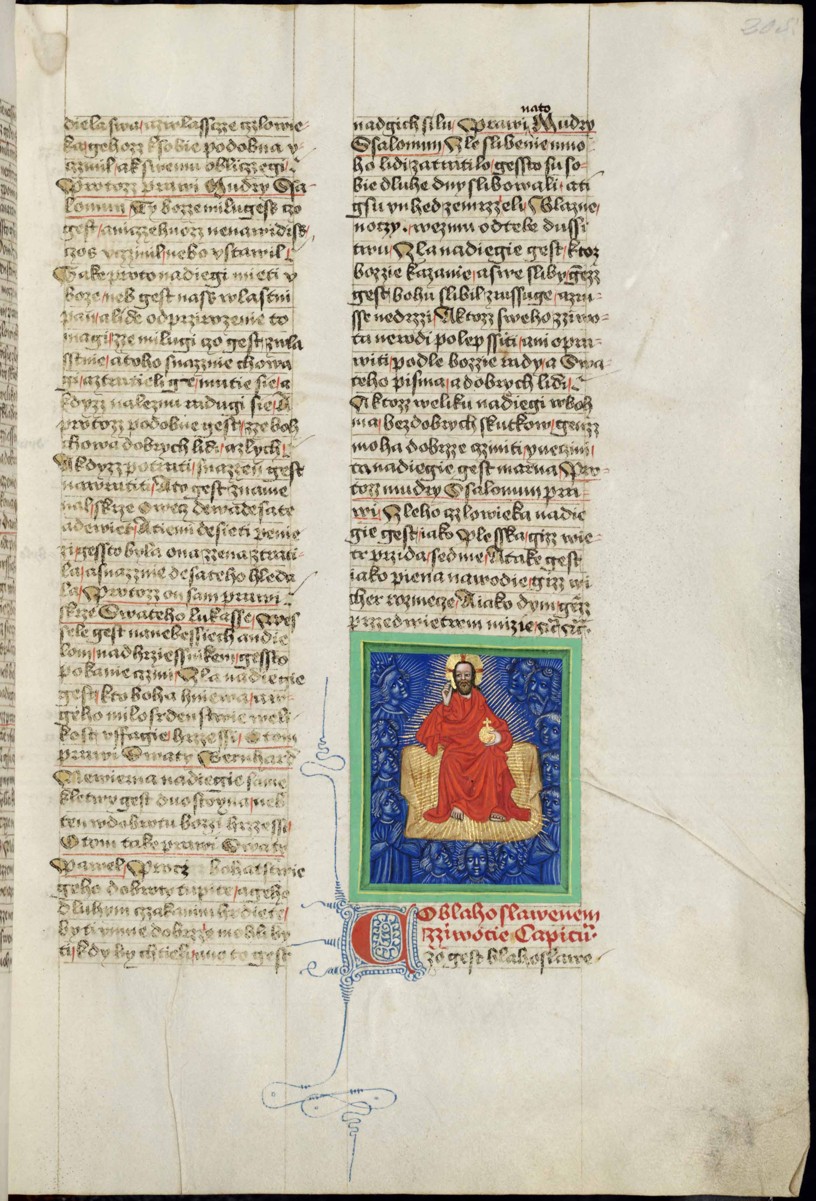 diela swa, a zwlasscze czlowie-
ka, gehozz k sobie podobna v-
czinil, ak swemu obliczegi,
Protozz prawi Mudry Ssa-
lomun, Ty bozze milugess czo
gest, a niczehuozz nenawidiss,
czos vczinil, nebo vstawil,
Take proto nadiegi mieti v
boze, neb gest nass wlastni
pan, a lide od przirozenie to
magi, zze milugi czo gest zwla
sstnie, a toho snazznie chowa
gi, a ztratieli ge, mutie sie, a
kdyzz naleznu radugi sie, A
protozz podobne gest, zze boh
chowa dobrych lidi, a zlych,
A kdyzz potrati, snazzen gest
nawratiti, A to gest zname-
nal, skrze Owecz dewadesate
a dewiet, A tiemi desieti penie
zi, gessto byla ona zzena ztrati-
la, a snazznie desateho hleda
la, Protozz on sam prawi
skrze Swateho lukasse, Wes
sele gest na nebessiech andie
lom, nad hrziessnikem, gessto
pokanie czini, Zla nadiegie
gest, kto boha hniewa, a w-
geho milosrdenstwie weli-
kost vffagie hrzessi, O tom
prawi Swaty Bernhard
Newierna nadiegie same
kletwy gest duostoyna, neb
ten w dobrotu bozzi hrzessi,
O tom take prawi Swaty
Pawel, Procz bohatstwie
geho dobroty tupite, a geho
dluhym czzakanim hrdiete,
by ti mnie dobrzze mohli by
ti, kdy by chtieli, ano to gest
nato
nad gich silu, Prawi Mudry
Ssalomun, Zle slibenie mno
ho lidi zatratilo, gessto su so-
bie dluhe dny slibowali, a ti
gsu ynhed zemrzzeli, Blazne,
noczy, wezmu od tebe dussi
twu, Zla nadiegie gest, ktoz
bozzie kazanie, a swe sliby, genzz
gest bohu slibil zrussuge, a zru-
sse nedrzzi, A ktozz sweho zziwo-
ta newodi polepssiti, ani opra-
witi, podle bozzie rady, a Swa-
teho pisma, a dobrych lidi,
A ktozz weliku nadiegi w boh
ma, bez dobrych skutkow, genzz
moha dobrzze cziniti, y neczini,
ta nadiegie gest marna, Pro-
tozz mudry Ssalomun pra-
wi, Zleho czlowieka nadie
gie gest, iako plesska, gizz wie-
tr przida, sedme, A take gest
iako piena na wodie, gizz wi
cher rozmeze, A iako dym, genzz
przzed wietrem mizie, etc etc
O blahoslawenem
zziwotie Capitu.
Czo gest blahoslawe-